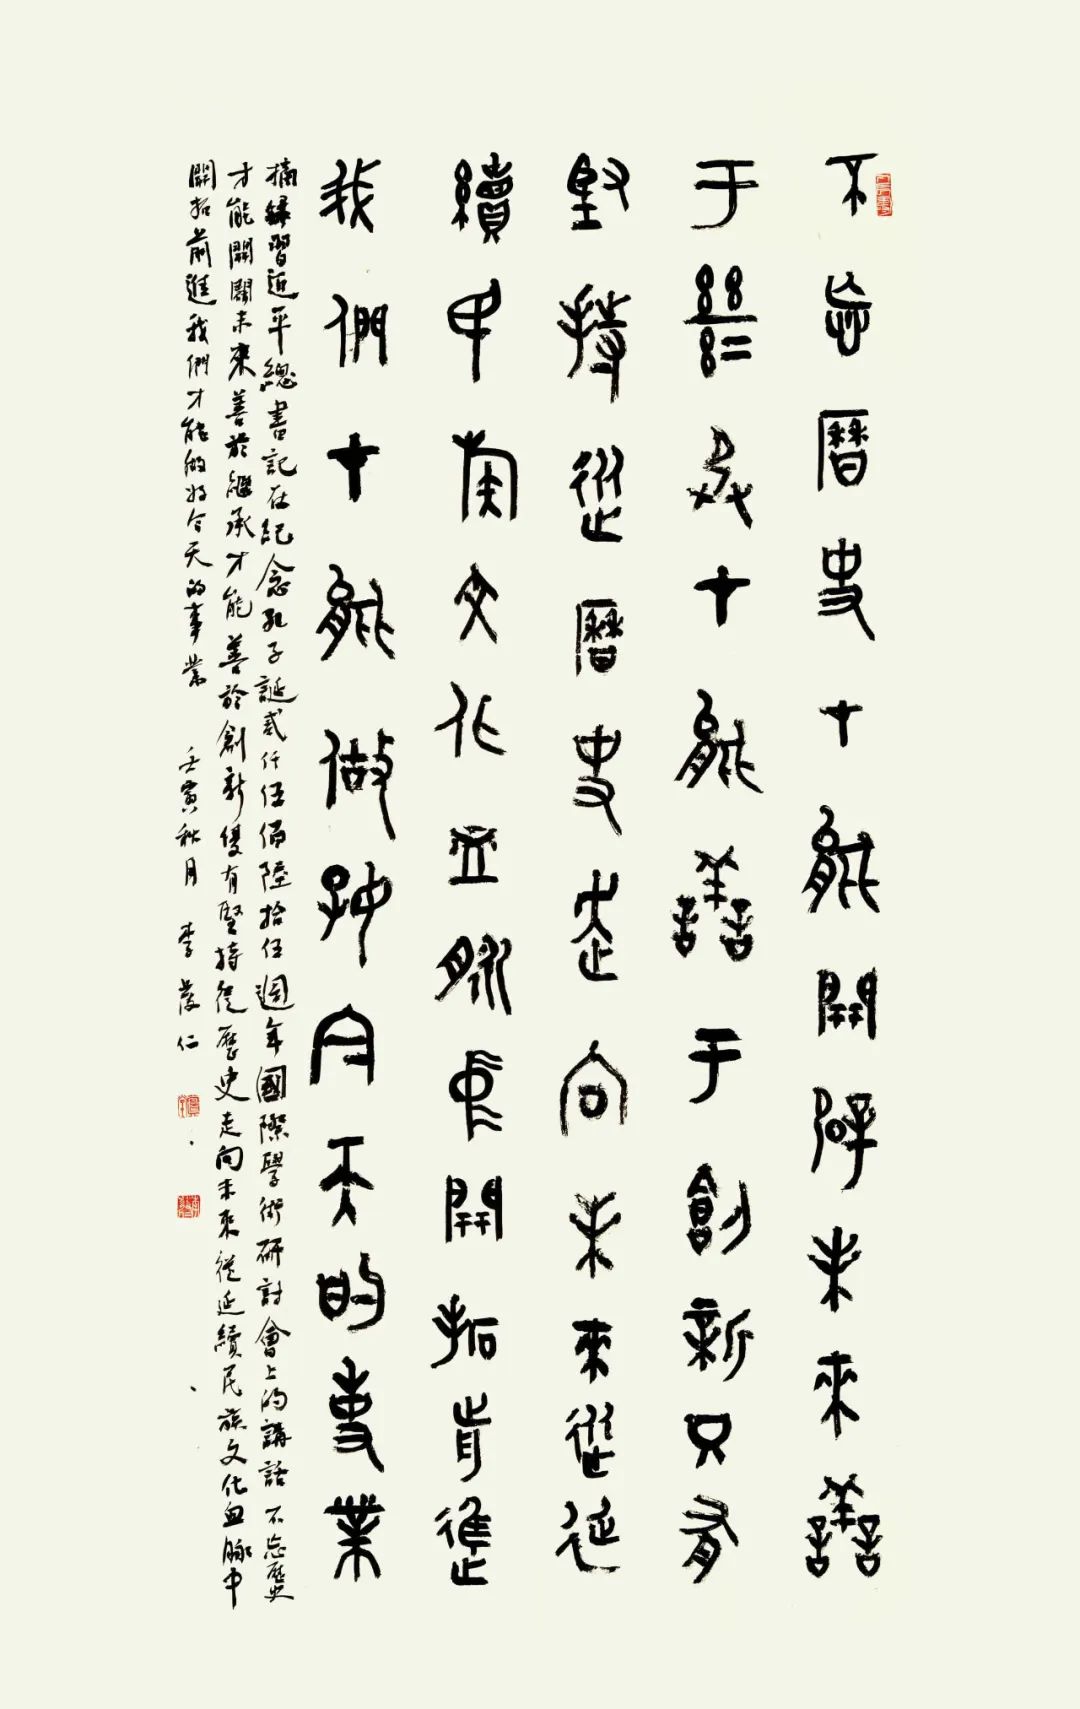 不忘曆史才能開辟未來善
于繼承才能善于創新只有
堅持從曆史走向未來從延
續民族文化血脈中開拓前進
我們才能做好今天的事業
摘錄習近平總書記在紀念孔子誕貳仟伍佰陸拾伍週年國際學術研討會上的講話 不忘歷史
才能開闢未來善於繼承才能善於創新有堅持從歷史走向未來從延續民族文化血脈中
開拓前進我們才能做好今天的事業 壬寅秋月 李仁